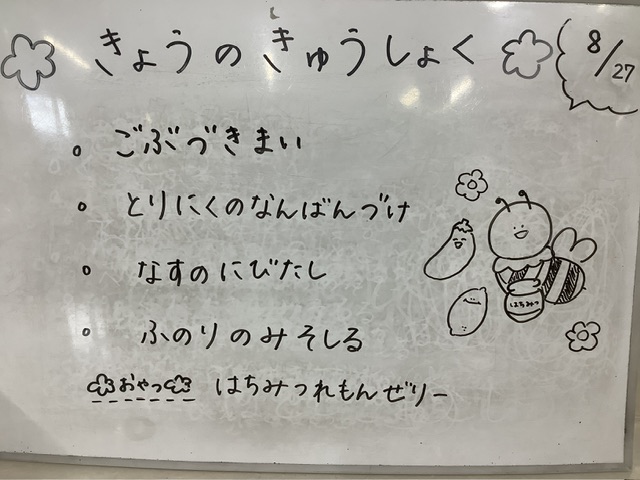 きょうのきゅうしょく
8/27
ごぶづきまい
とりにくのなんばんづけ
なすのにびたし
ふのりのみそしる
おやつ はちみつれもんぜりー
はちみつ